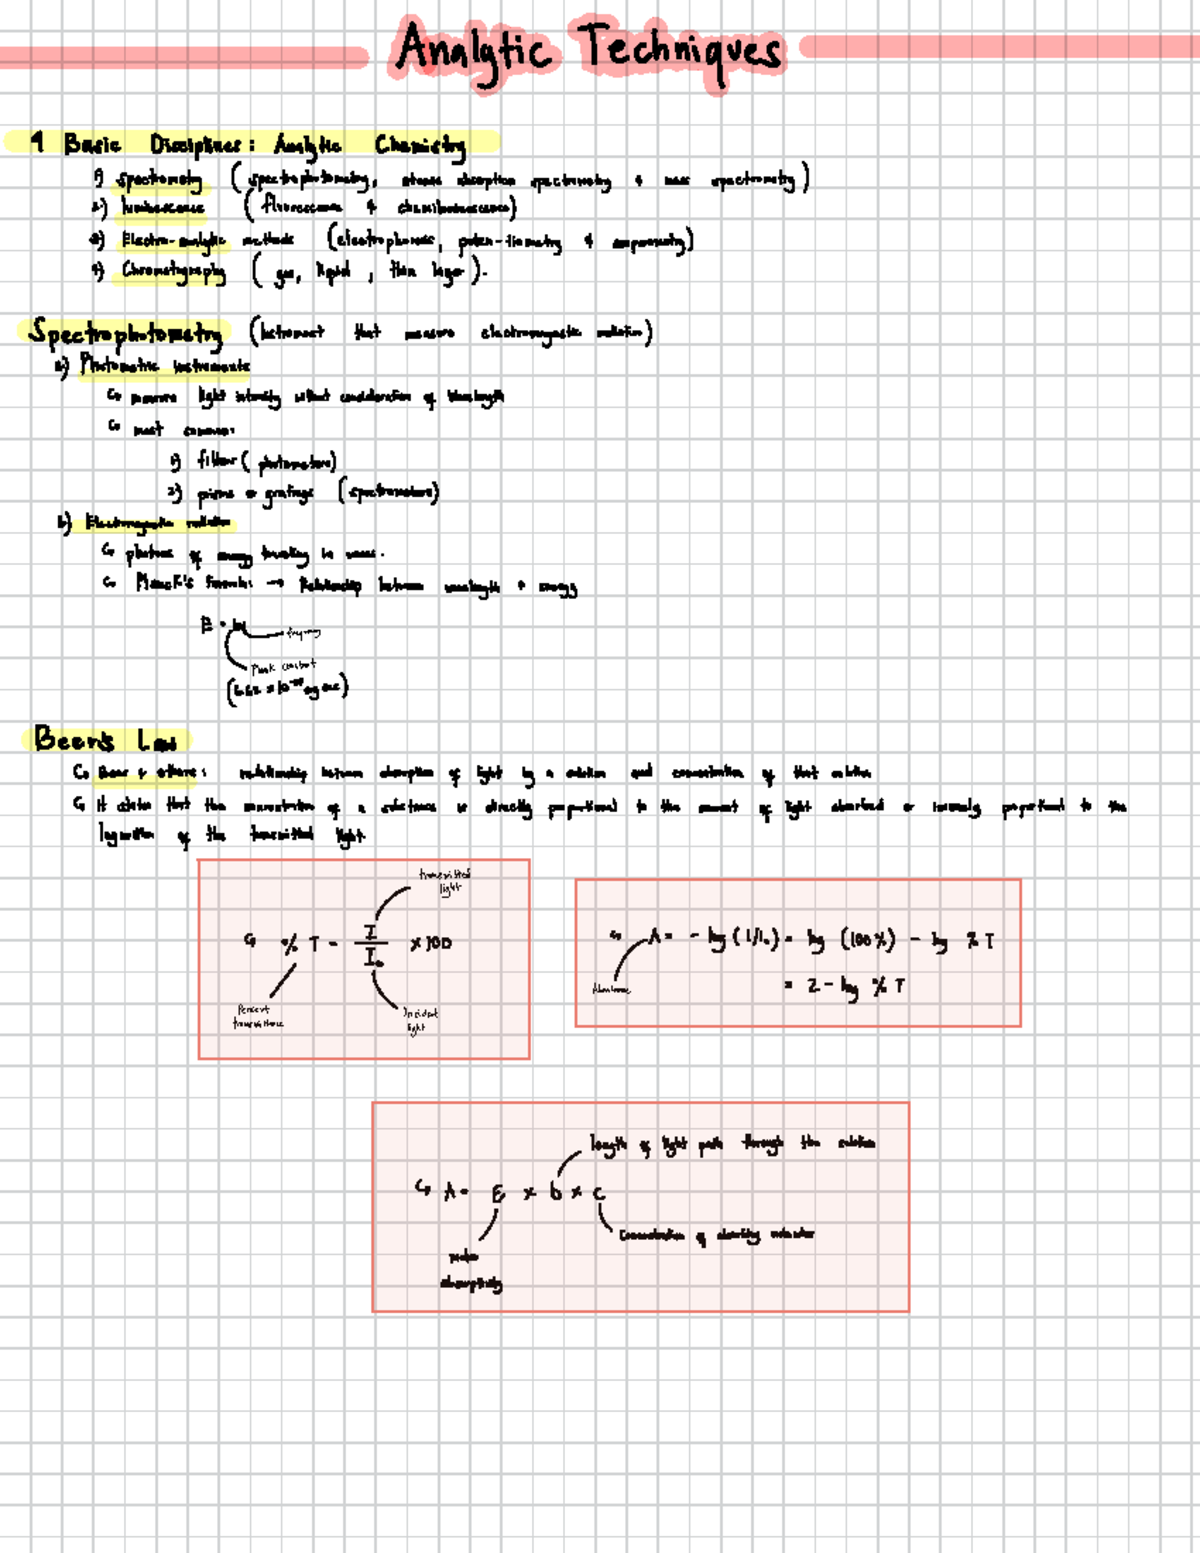 Analytic Techniques
4 Basic Disciplines: Analytic Chemistry
1) spectrometry (spectrophotometry, atomic absorption spectrometry & mass spectrometry)
2) luminescence (fluorescence & chemiluminescence)
3) Electro-analytic methods (electrophoresis, poten-tiometry & amperometry)
4) Chromatography (gas, liquid, thin layer).
Spectrophotometry (Instrument that measure electromagnetic radiation)
a) Photometric instruments
↳ measure light intensity without consideration of wavelength
↳ most common:
1) filter (photometers)
2) prisms or gratings (spectrometers)
b) Electromagnetic radiation
↳ photons of energy traveling in waves.
↳ Planck's formula: → Relationship between wavelength & energy
E = hv
frequency
Plank constant
(6.62 x 10 erg sec)
Beer's Law
↳ Beer & others: relationship between absorption of light by a solution and concentration of that solution
↳ It states that the concentration of a substance is directly proportional to the amount of light absorbed or inversely proportional to the
logarithm of the transmitted light.
transmitted
light
↳ % T = I / I₀ x 100
Percent
transmittance
Incident
light
↳ A = - log (I/I₀) = log (100%) - log % T
= 2 - log % T
Absorbance
length of light path through the solution
↳ A = ε x b x c
Concentration of absorbing molecules
molar
absorptivity